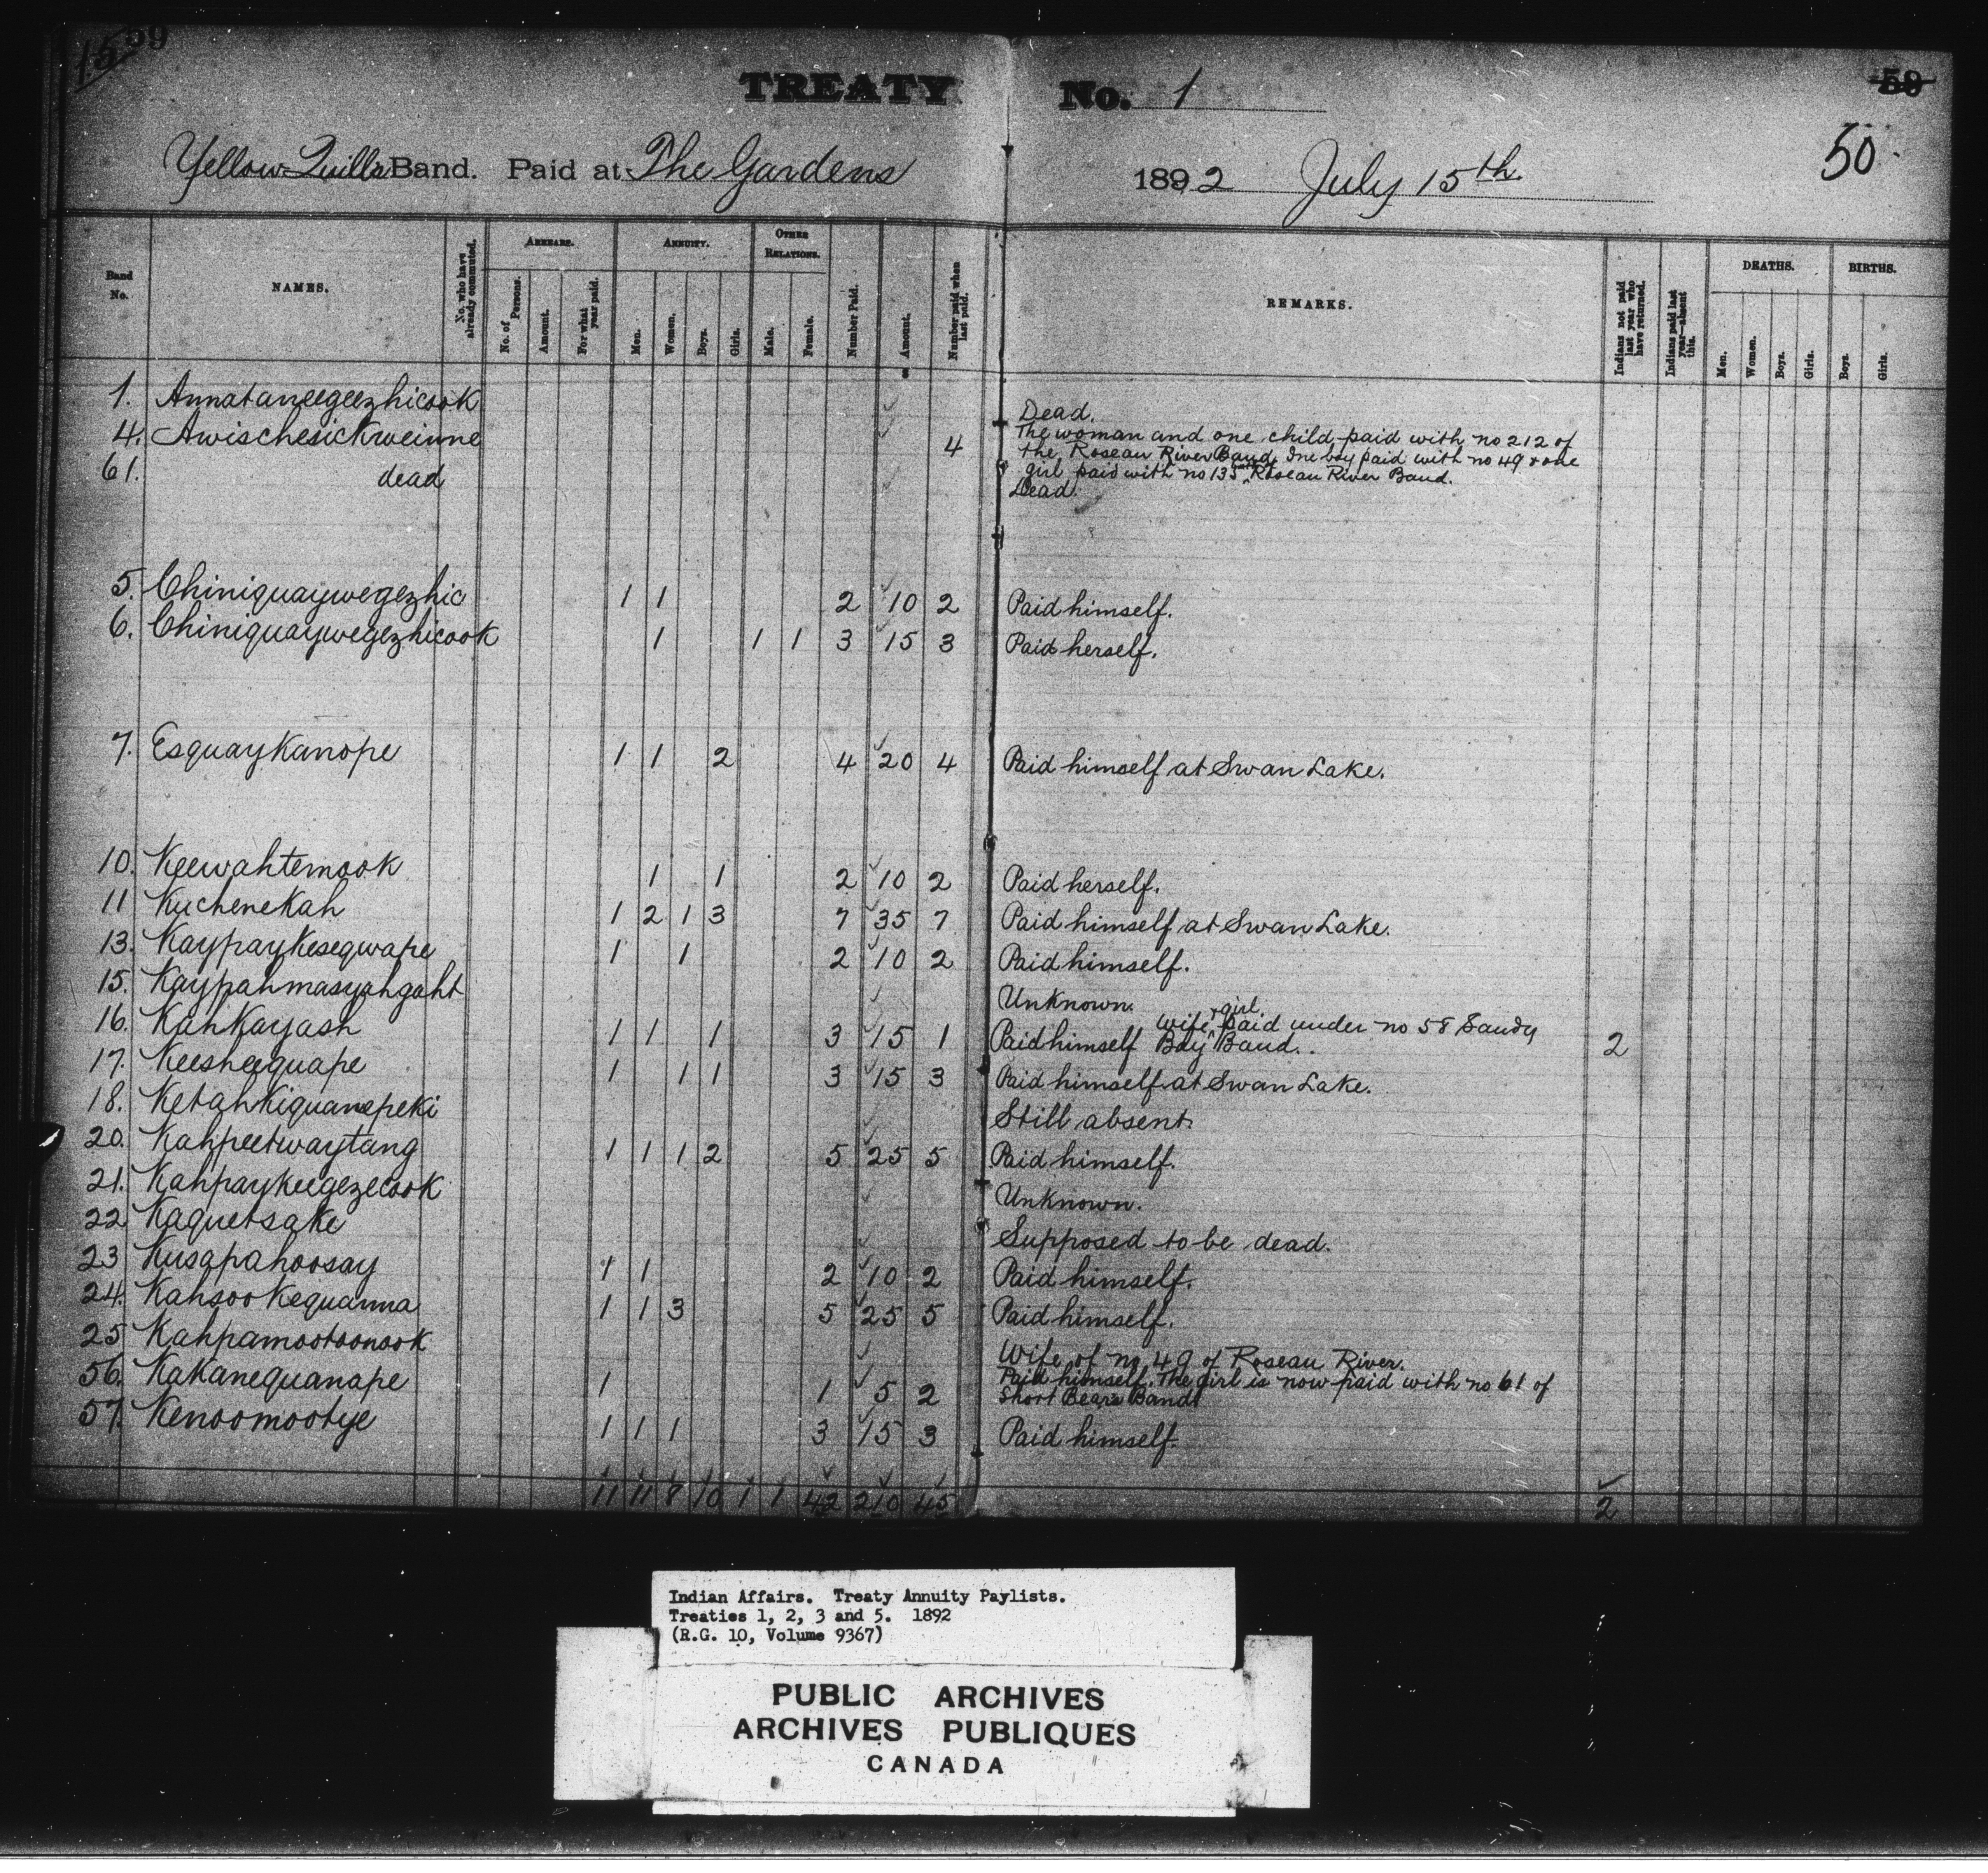 59
15
TREATY No. 1
59
50
Yellow Quills Band. Paid at The Gardens 1892 July 15th
Band No.
NAMES.
No. who have already commuted.
ARREARS.
No. of Persons.
Amount.
For what year paid.
ANNUITY.
Men.
Women.
Boys.
Girls.
OTHER RELATIONS.
Male.
Female.
Number Paid.
Amount.
Number paid when last paid.
REMARKS.
Indians not paid last year who have returned.
Indians paid last year—absent this.
DEATHS.
Men.
Women.
Boys.
Girls.
BIRTHS.
Boys.
Girls.
1. Annataneegeezhicook Dead.
4. Awischesickweinne 4 The woman and one child paid with no 212 of
the Roseau River Band. One boy paid with no 49 & one
girl paid with no 135 Roseau River Band.
61. dead Dead.
5. Chiniquaywegezhic 1 1 2 10 2 Paid himself.
6. Chiniquaywegezhicook 1 1 1 3 15 3 Paid herself.
7. Esquaykanope 1 1 2 4 20 4 Paid himself at Swan Lake.
10. Keewahtemook 1 1 2 10 2 Paid herself.
11 Kuchenekah 1 2 1 3 7 35 7 Paid himself at Swan Lake.
13. Kaypaykesegwape 1 1 2 10 2 Paid himself.
15. Kaypahmasyahgaht Unknown.
16. Kahkayash 1 1 1 3 15 1 Paid himself Wife & girl paid under no 58 Sandy
Bay Band.. 2
17. Keesheequape 1 1 1 3 15 3 Paid himself at Swan Lake.
18. Ketahkiquanepeki Still absent.
20. Kahpeetwaytang 1 1 1 2 5 25 5 Paid himself.
21. Kahpaykeegezecook Unknown.
22 Kaquetsake Supposed to be dead.
23 Kusapahoosay 1 1 2 10 2 Paid himself.
24. Kahsookequanna 1 1 3 5 25 5 Paid himself.
25 Kahpamootoonook Wife of no 49 of Roseau River.
56. Kakanequanape 1 1 5 2 Paid himself. The girl is now paid with no 61 of
Short Bears Band
57. Kenoomootye 1 1 1 3 15 3 Paid himself.
11 11 8 10 1 1 42 210 45 2
Indian Affairs. Treaty Annuity Paylists.
Treaties 1, 2, 3 and 5. 1892
(R.G. 10, Volume 9367)
PUBLIC ARCHIVES
ARCHIVES PUBLIQUES
CANADA